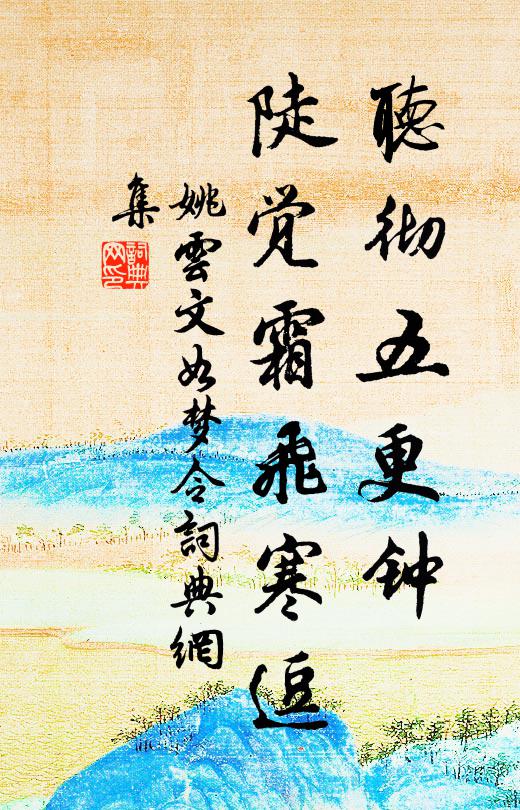 聽彻五更钟
陡觉霜飛寒逗
姚雲文如梦令詞典網
集
詞典
网印